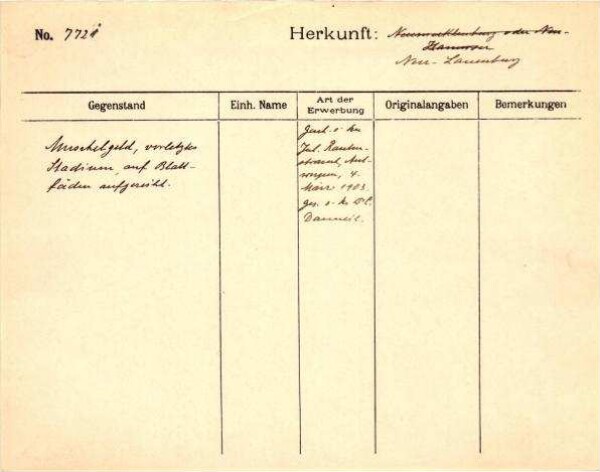 No. 772i
Herkunft: Neumecklenburg oder Neu-
Hannover
Neu-Lauenburg
Gegenstand
Einh. Name
Art der
Erwerbung
Originalangaben
Bemerkungen
Muschelgeld, vorletztes
Stadium, auf Blatt-
fäden aufgereiht.
Gesch. v. Kn
Jul. Rauten-
strauch, Ant-
werpen, 4.
März 1903
Ges. v.
Danneil.